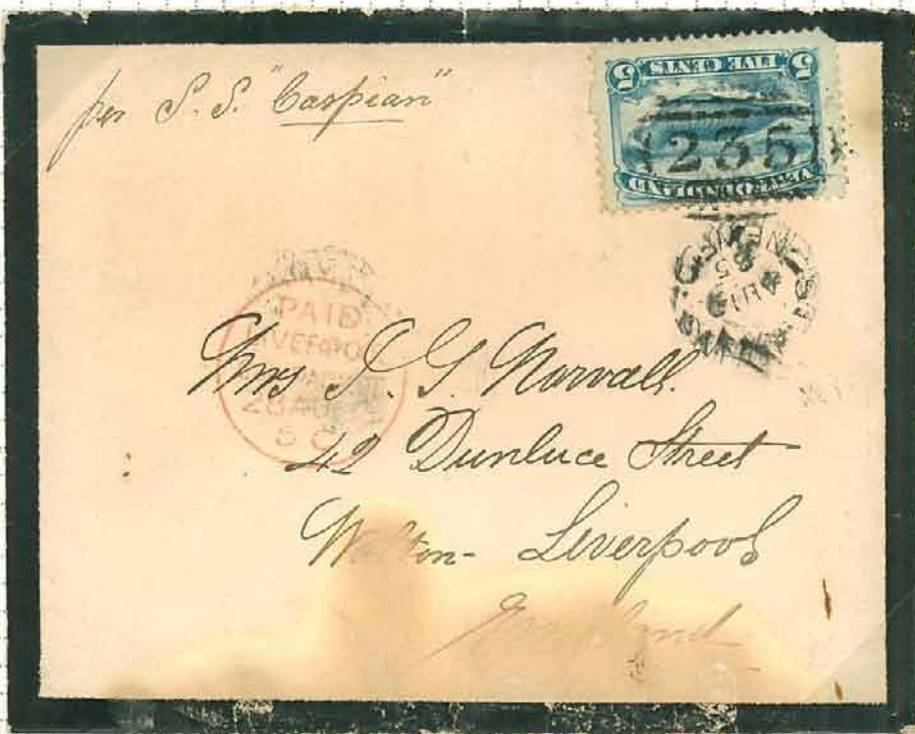 per S.S. "Caspian"
5 FIVE CENTS 5
NEWFOUNDLAND
235
PAID
LIVERPOOL
Mrs
Norvall.
42 Dunluce Street
Walton - Liverpool
England